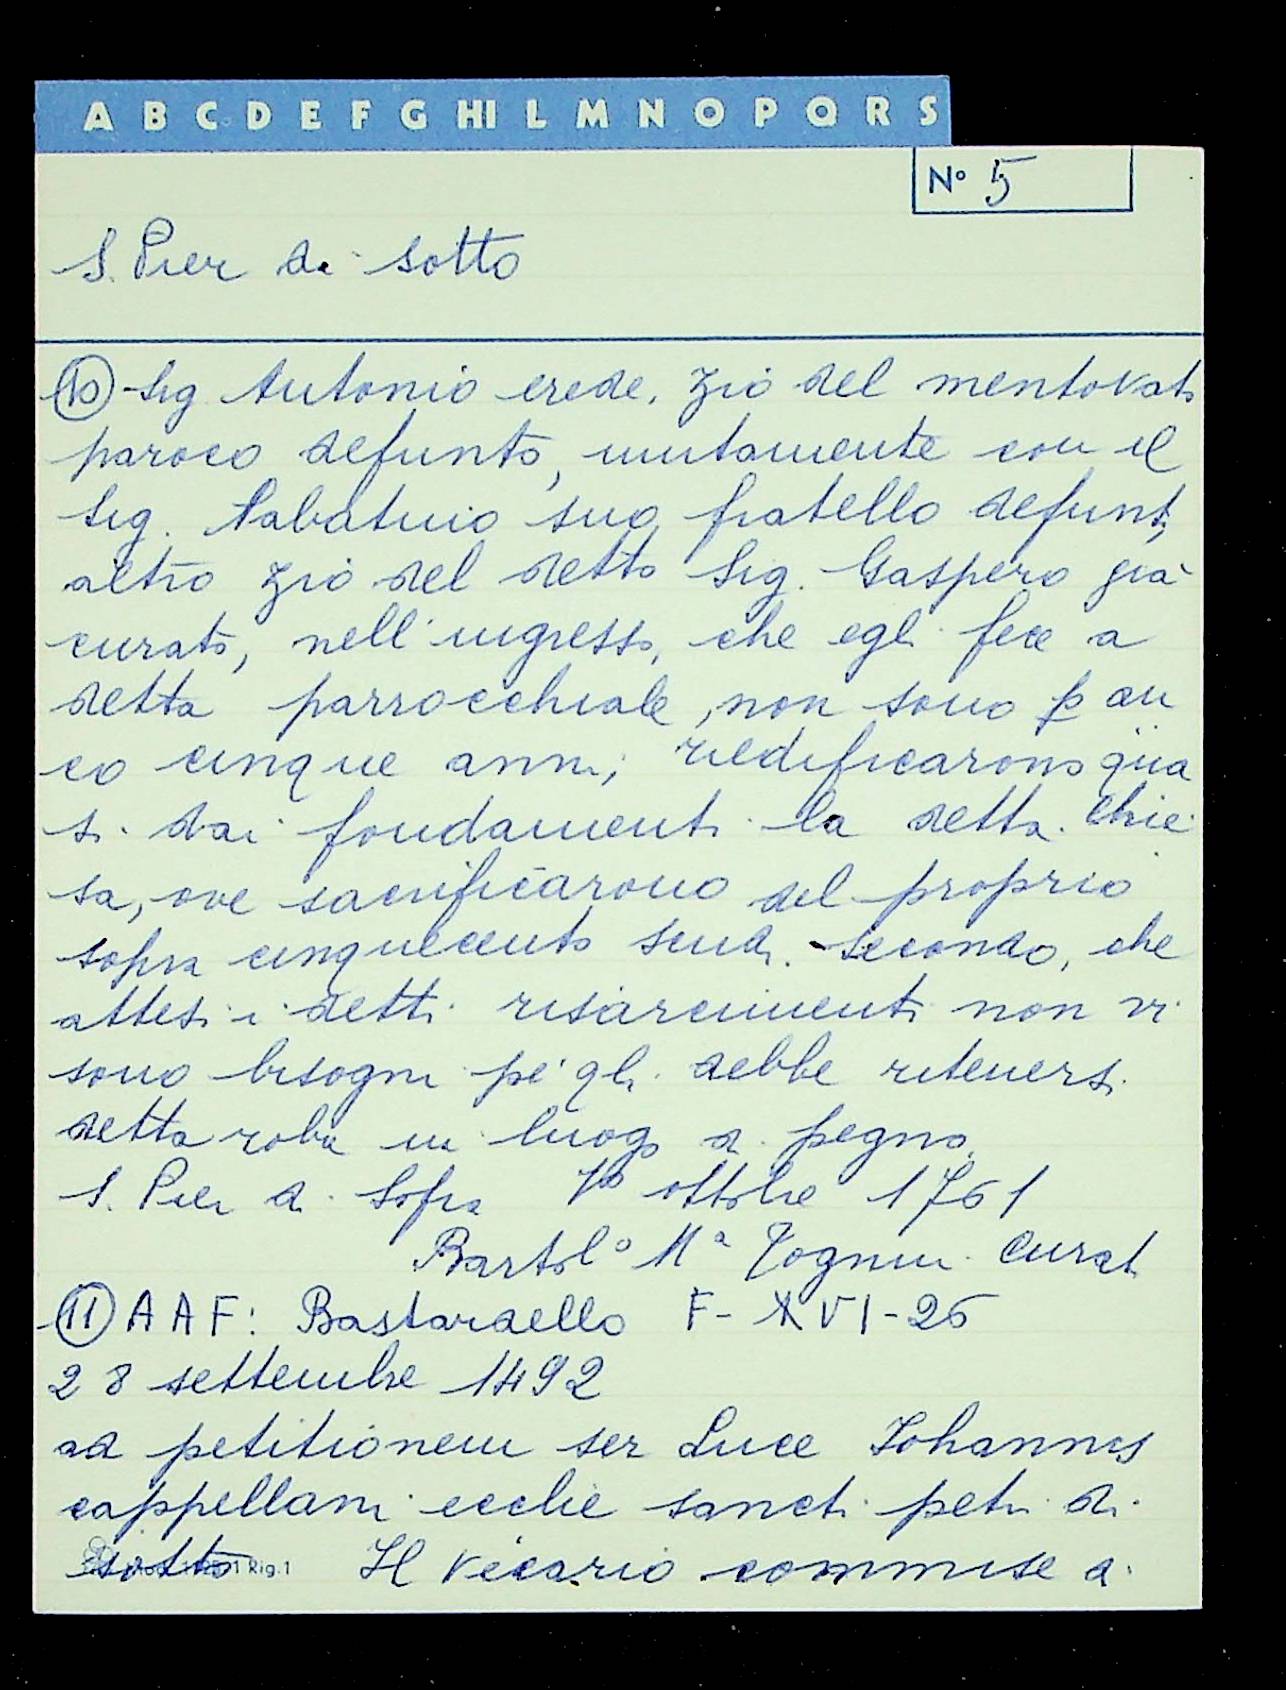 A B C D E F G HI L M N O P Q R S
Nº 5
S. Pier di sotto
10 - Sig Antonio erede, zio del mentovato
paroco defunto, unitamente con il
Sig. Sabatino suo fratello defunto,
altro zio del detto Sig. Gaspero già
curato, nell'ingresso, che egli fece a
detta parrocchiale, non sono p an
co cinque anni, riedificarono qua
si dai fondamenti la detta chie
sa, ove sacrificarono del proprio
sopra cinquecento scudi. Secondo, che
attesi i detti risarcimenti non vi
sono bisogni pe' qli debbe ritenersi
detta roba in luogo di pegno.
S. Pier di Sopra ottobre 1761
Bartolº Mª Tognini Curato
11 A A F: Bastardello F - XVI - 26
28 settembre 1492
ad petitionem ser Luce Johannis
cappellani ecclie sancti petri di
sotto Il vicario commise a
Rig.1